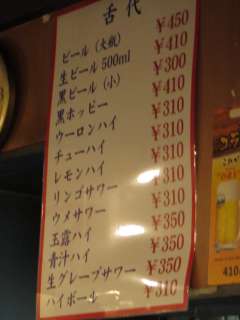 舌代
ビール（大瓶） ¥450
生ビール500ml ¥410
黒ビール（小） ¥300
黒ホッピー ¥410
ウーロンハイ ¥310
チューハイ ¥310
レモンハイ ¥310
リンゴサワー ¥310
ウメサワー ¥310
玉露ハイ ¥350
青汁ハイ ¥350
生グレープサワー ¥350
ハイボール ¥310
410